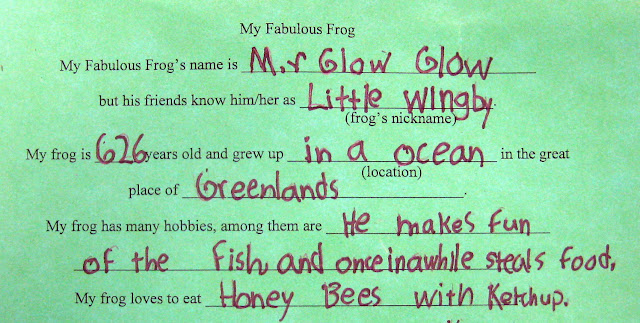 My Fabulous Frog
My Fabulous Frog's name is M.r Glow Glow
but his friends know him/her as Little Wingby.
(frog's nickname)
My frog is 626 years old and grew up in a ocean in the great
(location)
place of Greenlands.
My frog has many hobbies, among them are He makes fun
of the Fish and onceinawhile steals food,
My frog loves to eat Honey Bees with Ketchup.